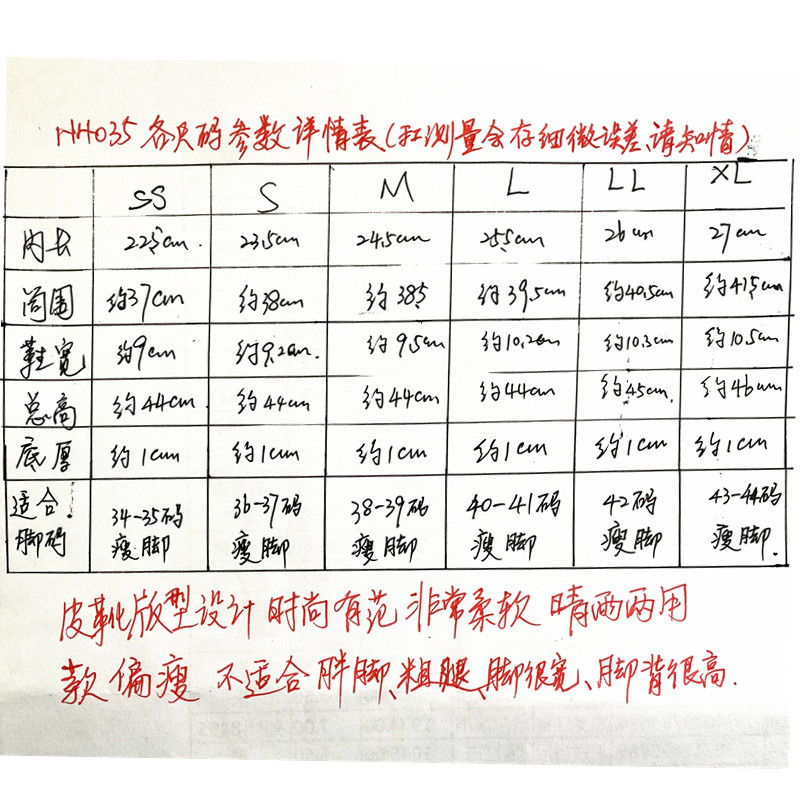 HH035各尺码参数详情表(手工测量会存细微误差、请知情)
SS S M L LL XL
内长 22.5cm. 23.5cm 24.5cm 25.5cm 26cm 27cm
筒围 约37cm 约38cm 约38.5 约39.5cm 约40.5cm 约41.5cm
鞋宽 约9cm 约9.2cm. 约9.5cm 约10.2cm 约10.3cm 约10.5cm
总高 约44cm 约44cm 约44cm 约44cm 约45cm. 约46cm
底厚 约1cm 约1cm 约1cm 约1cm 约1cm 约1cm
适合. 34-35码 36-37码 38-39码 40-41码 42码 43-44码
脚码 瘦脚 瘦脚 瘦脚 瘦脚 瘦脚 瘦脚.
皮靴化版型设计 时尚有范 非常柔软 晴雨两用
款偏瘦 不适合胖脚、粗腿、脚很宽、脚背很高.